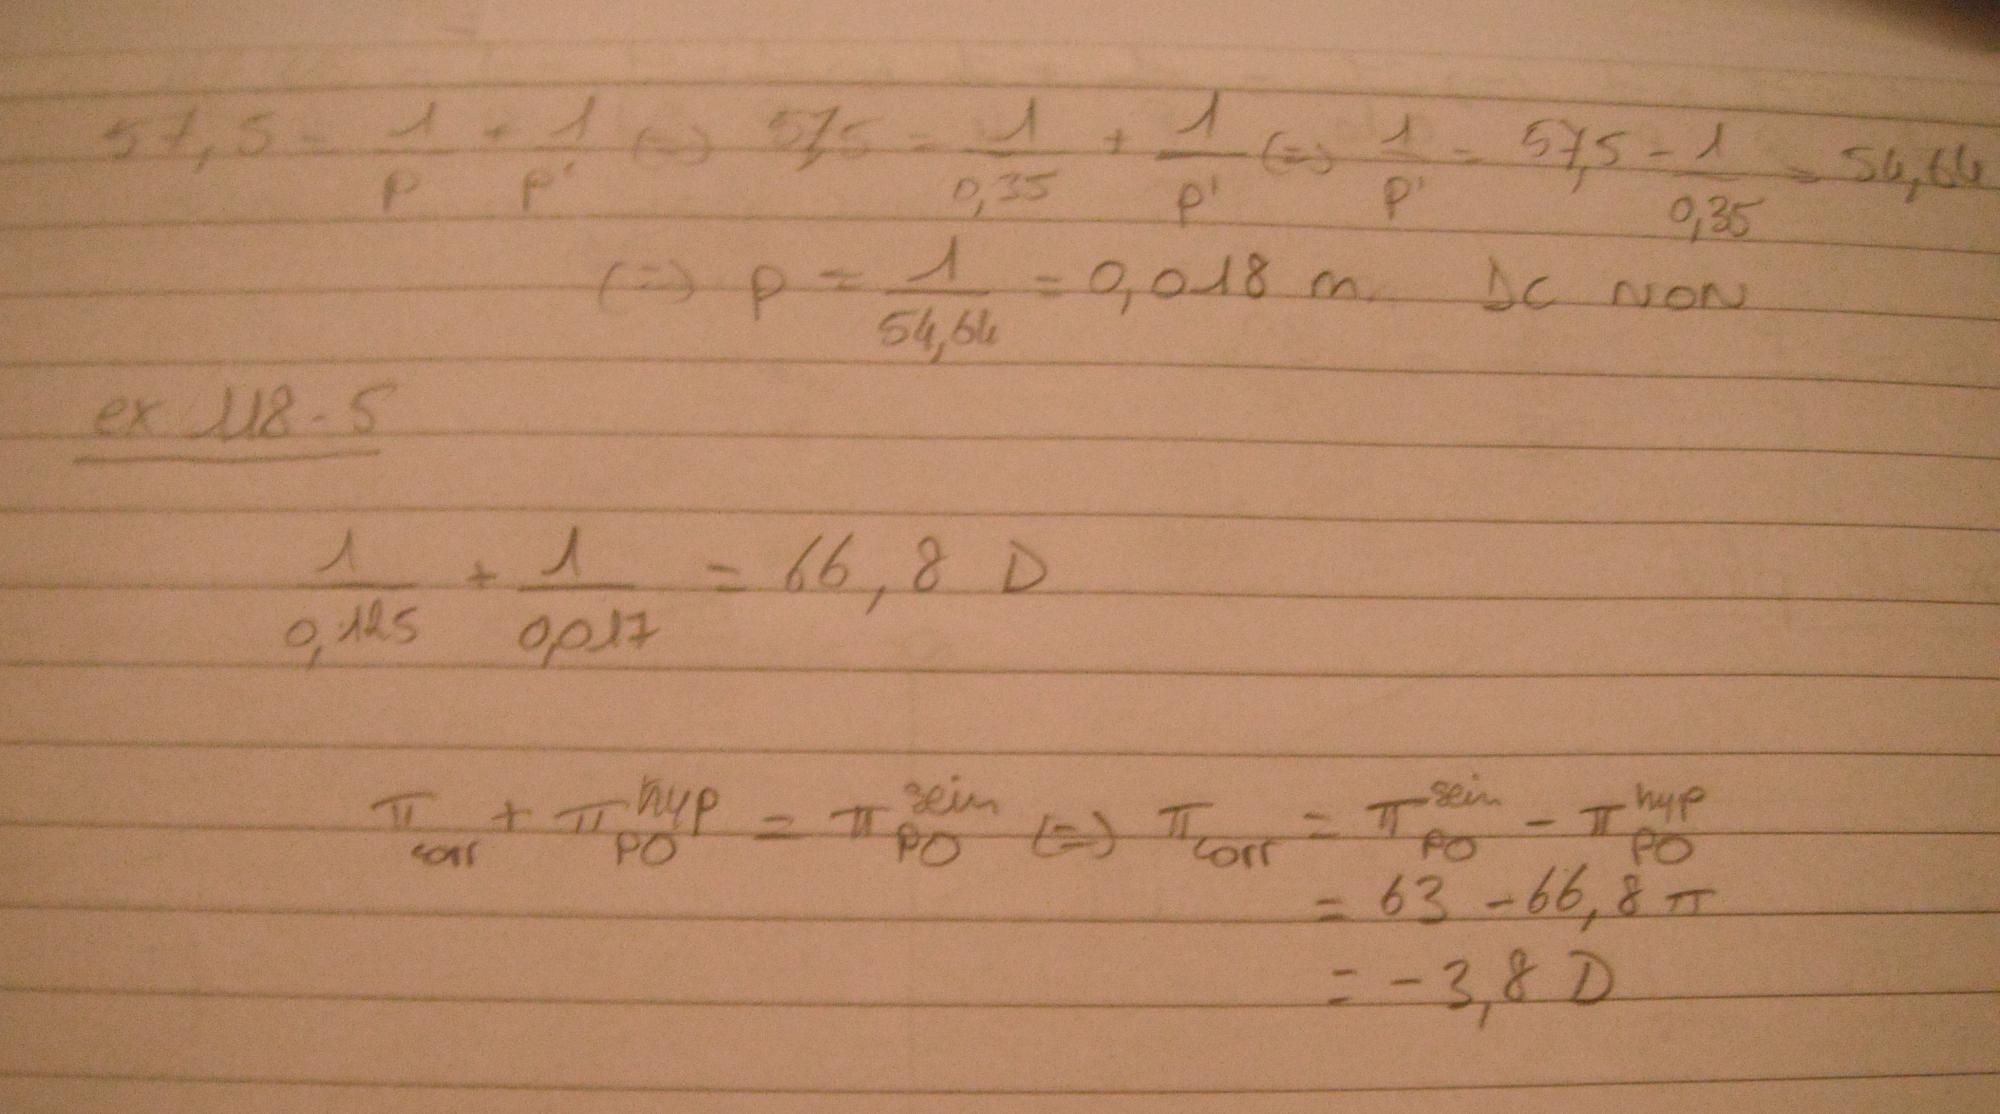 57,5 = 1/p + 1/p' (=) 57,5 = 1/0,35 + 1/p' (=) 1/p' = 57,5 - 1/0,35 = 54,64
(=) p = 1/54,64 = 0,018 m. Dc NON
ex 118-5
1/0,125 + 1/0,017 = 66,8 D
π corr + π PO hyp = π PO sein (=) π corr = π PO sein - π PO hyp
= 63 - 66,8 π
= -3,8 D